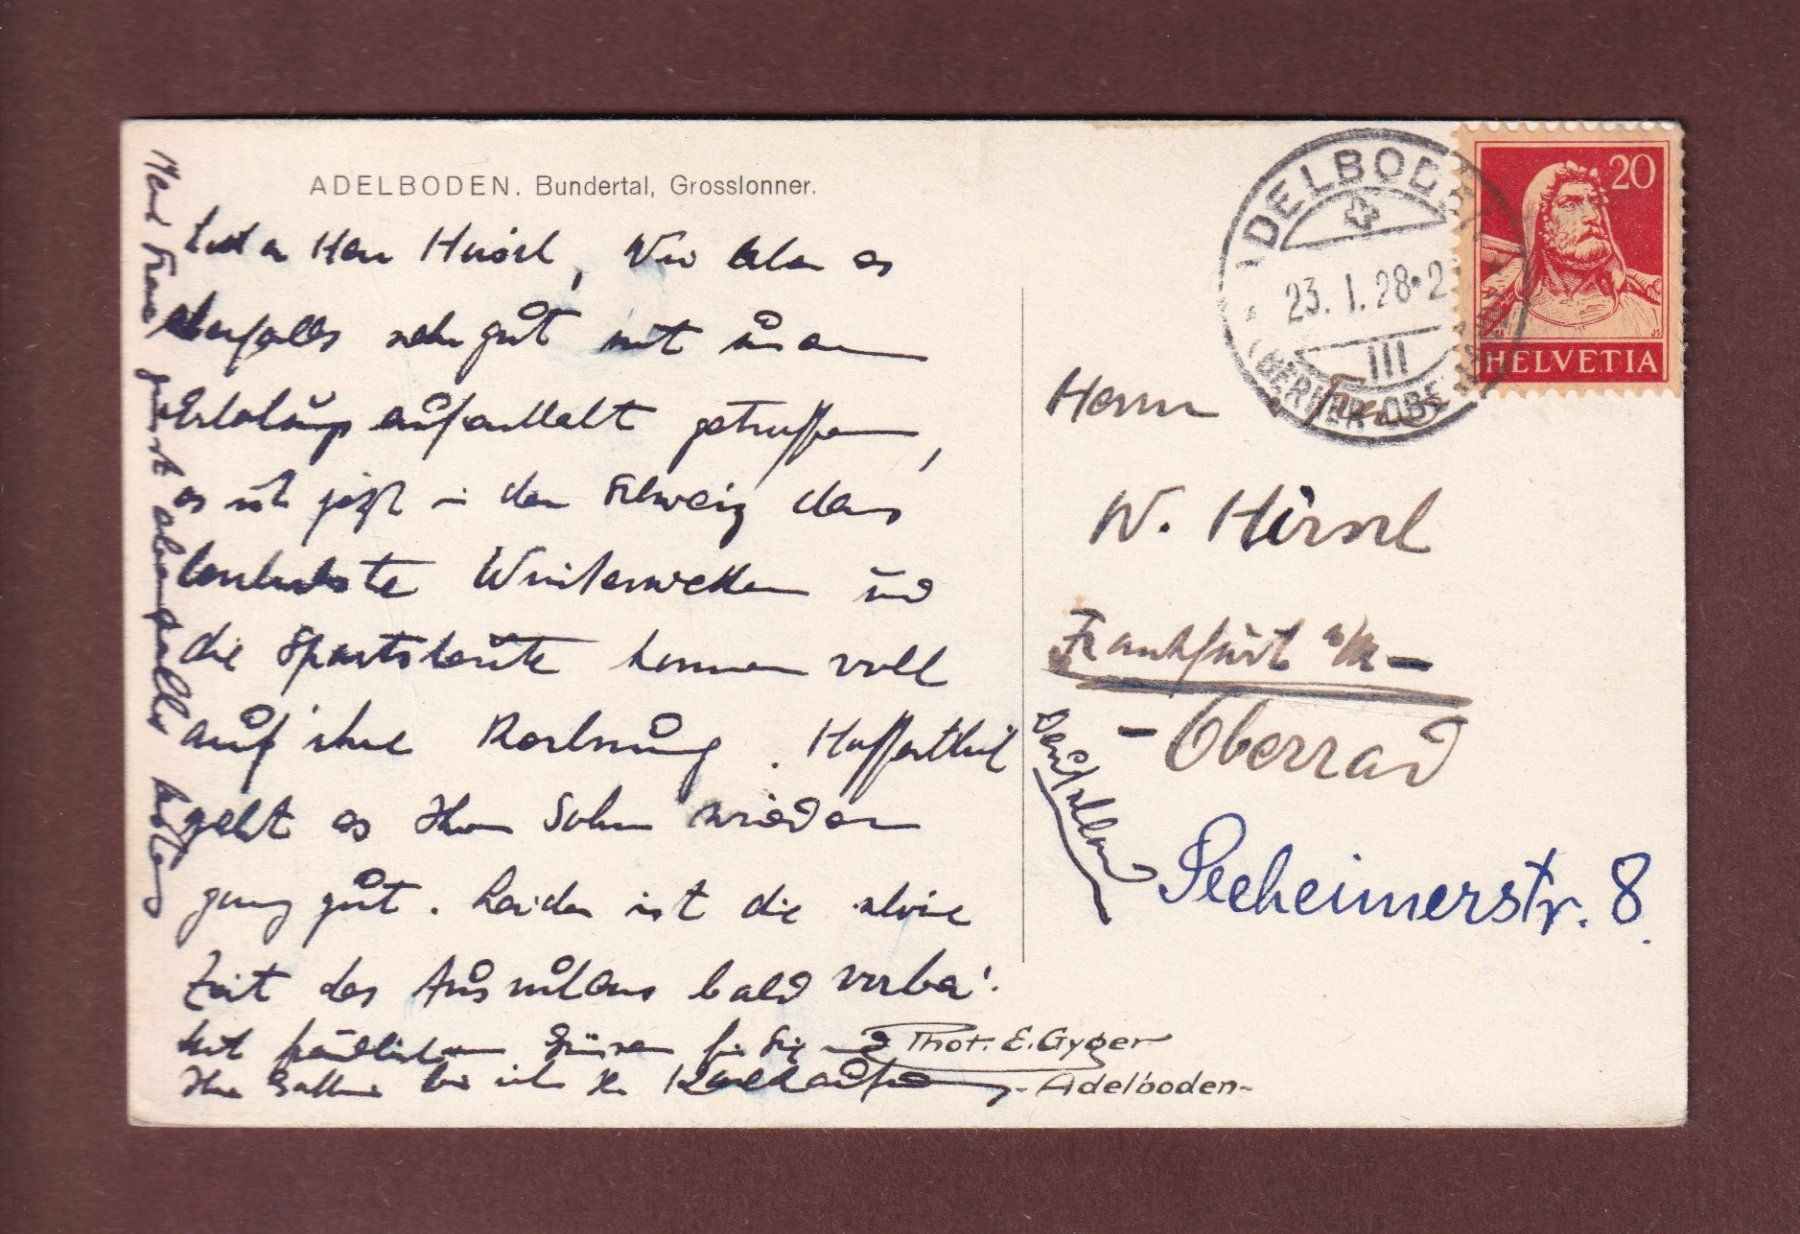 ADELBODEN. Bundertal, Grosslonner.
Herr Hirsch, Wir haben es
ebenfalls sehr gut mit unserem
Erholungsaufenthalt getroffen,
es ist jetzt in der Schweiz das
Winterwetter und
die Sportsleute kommen voll
auf ihre Rechnung. Hoffentlich
geht es Ihrem Sohn wieder
ganz gut. Leider ist die schöne
Zeit des Ausruhens bald vorbei.
Mit freundlichen Grüssen für Sie und
Ihre Gattin bin ich Ihr
Meine Frau grüsst ebenfalls bestens
Phot. E. Gyger
-Adelboden-
ADELBODEN
23. I. 28
III
(BERNER OBE
20
HELVETIA
Herrn
W. Hirsch
Frankfurt a/M-
-Oberrad
Deutschland
Seeheimerstr. 8.